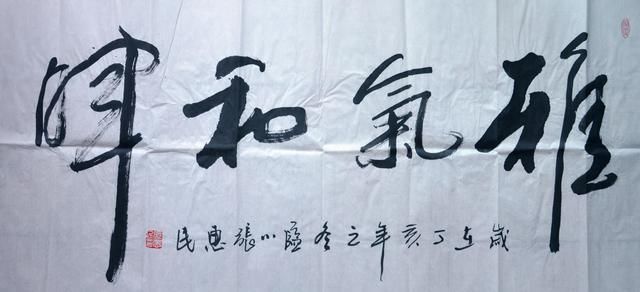 雅氣和暉
歲在丁亥年之冬臨川張民